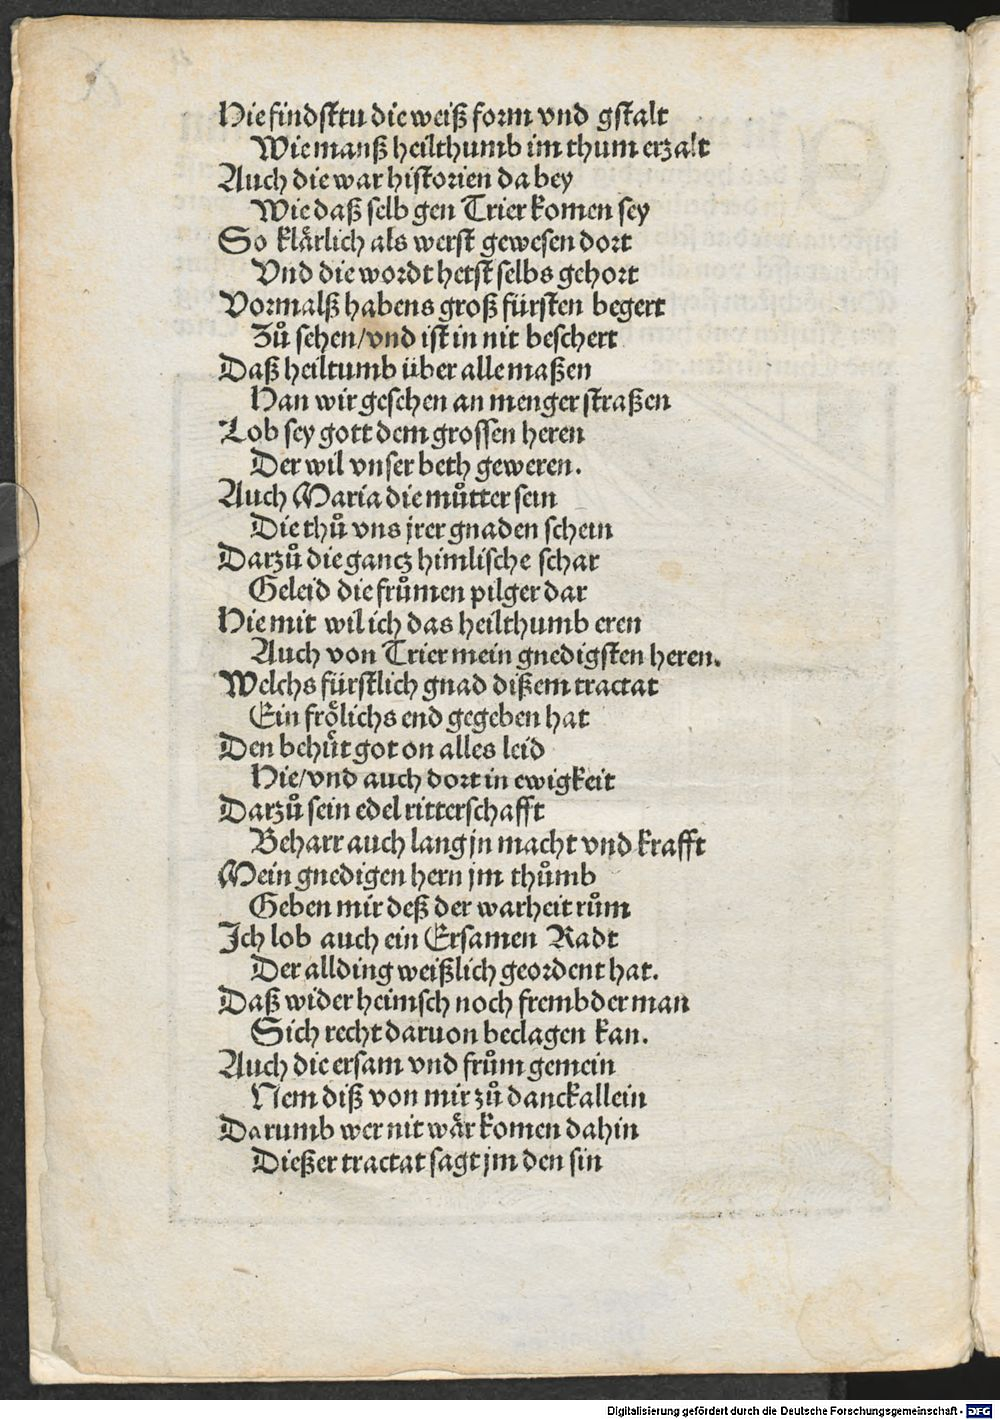 Hie findsttu die weiß form vnd gstalt
Wie manß heilthumb im thum erzalt
Auch die war historien da bey
Wie daß selb gen Trier komen sey
So klärlich als werst gewesen dort
Vnd die wordt hetst selbs gehort
Vormalß habens groß fürsten begert
Zů sehen/vnd ist in nit beschert
Daß heiltumb über alle maßen
Han wir gesehen an menger straßen
Lob sey gott dem grossen heren
Der wil vnser beth geweren.
Auch Maria die můtter sein
Die thů vns jrer gnaden schein
Darzů die gantz himlische schar
Geleid die frůmen pilger dar
Hie mit wil ich das heilthumb eren
Auch von Trier mein gnedigsten heren.
Welchs fürstlich gnad dißem tractat
Ein frölichs end gegeben hat
Den behüt got on alles leid
Hie/vnd auch dort in ewigkeit
Darzů sein edel ritterschafft
Beharr auch lang jn macht vnd krafft
Mein gnedigen hern jm thůmb
Geben mir deß der warheit rům
Ich lob auch ein Ersamen Radt
Der allding weißlich geordent hat.
Daß wider heimsch noch frembder man
Sich recht daruon beclagen kan.
Auch die ersam vnd frům gemein
Nem diß von mir zů danck allein
Darumb wer nit wär komen dahin
Dießer tractat sagt jm den sin
Digitalisierung gefördert durch die Deutsche Forschungsgemeinschaft - DFG